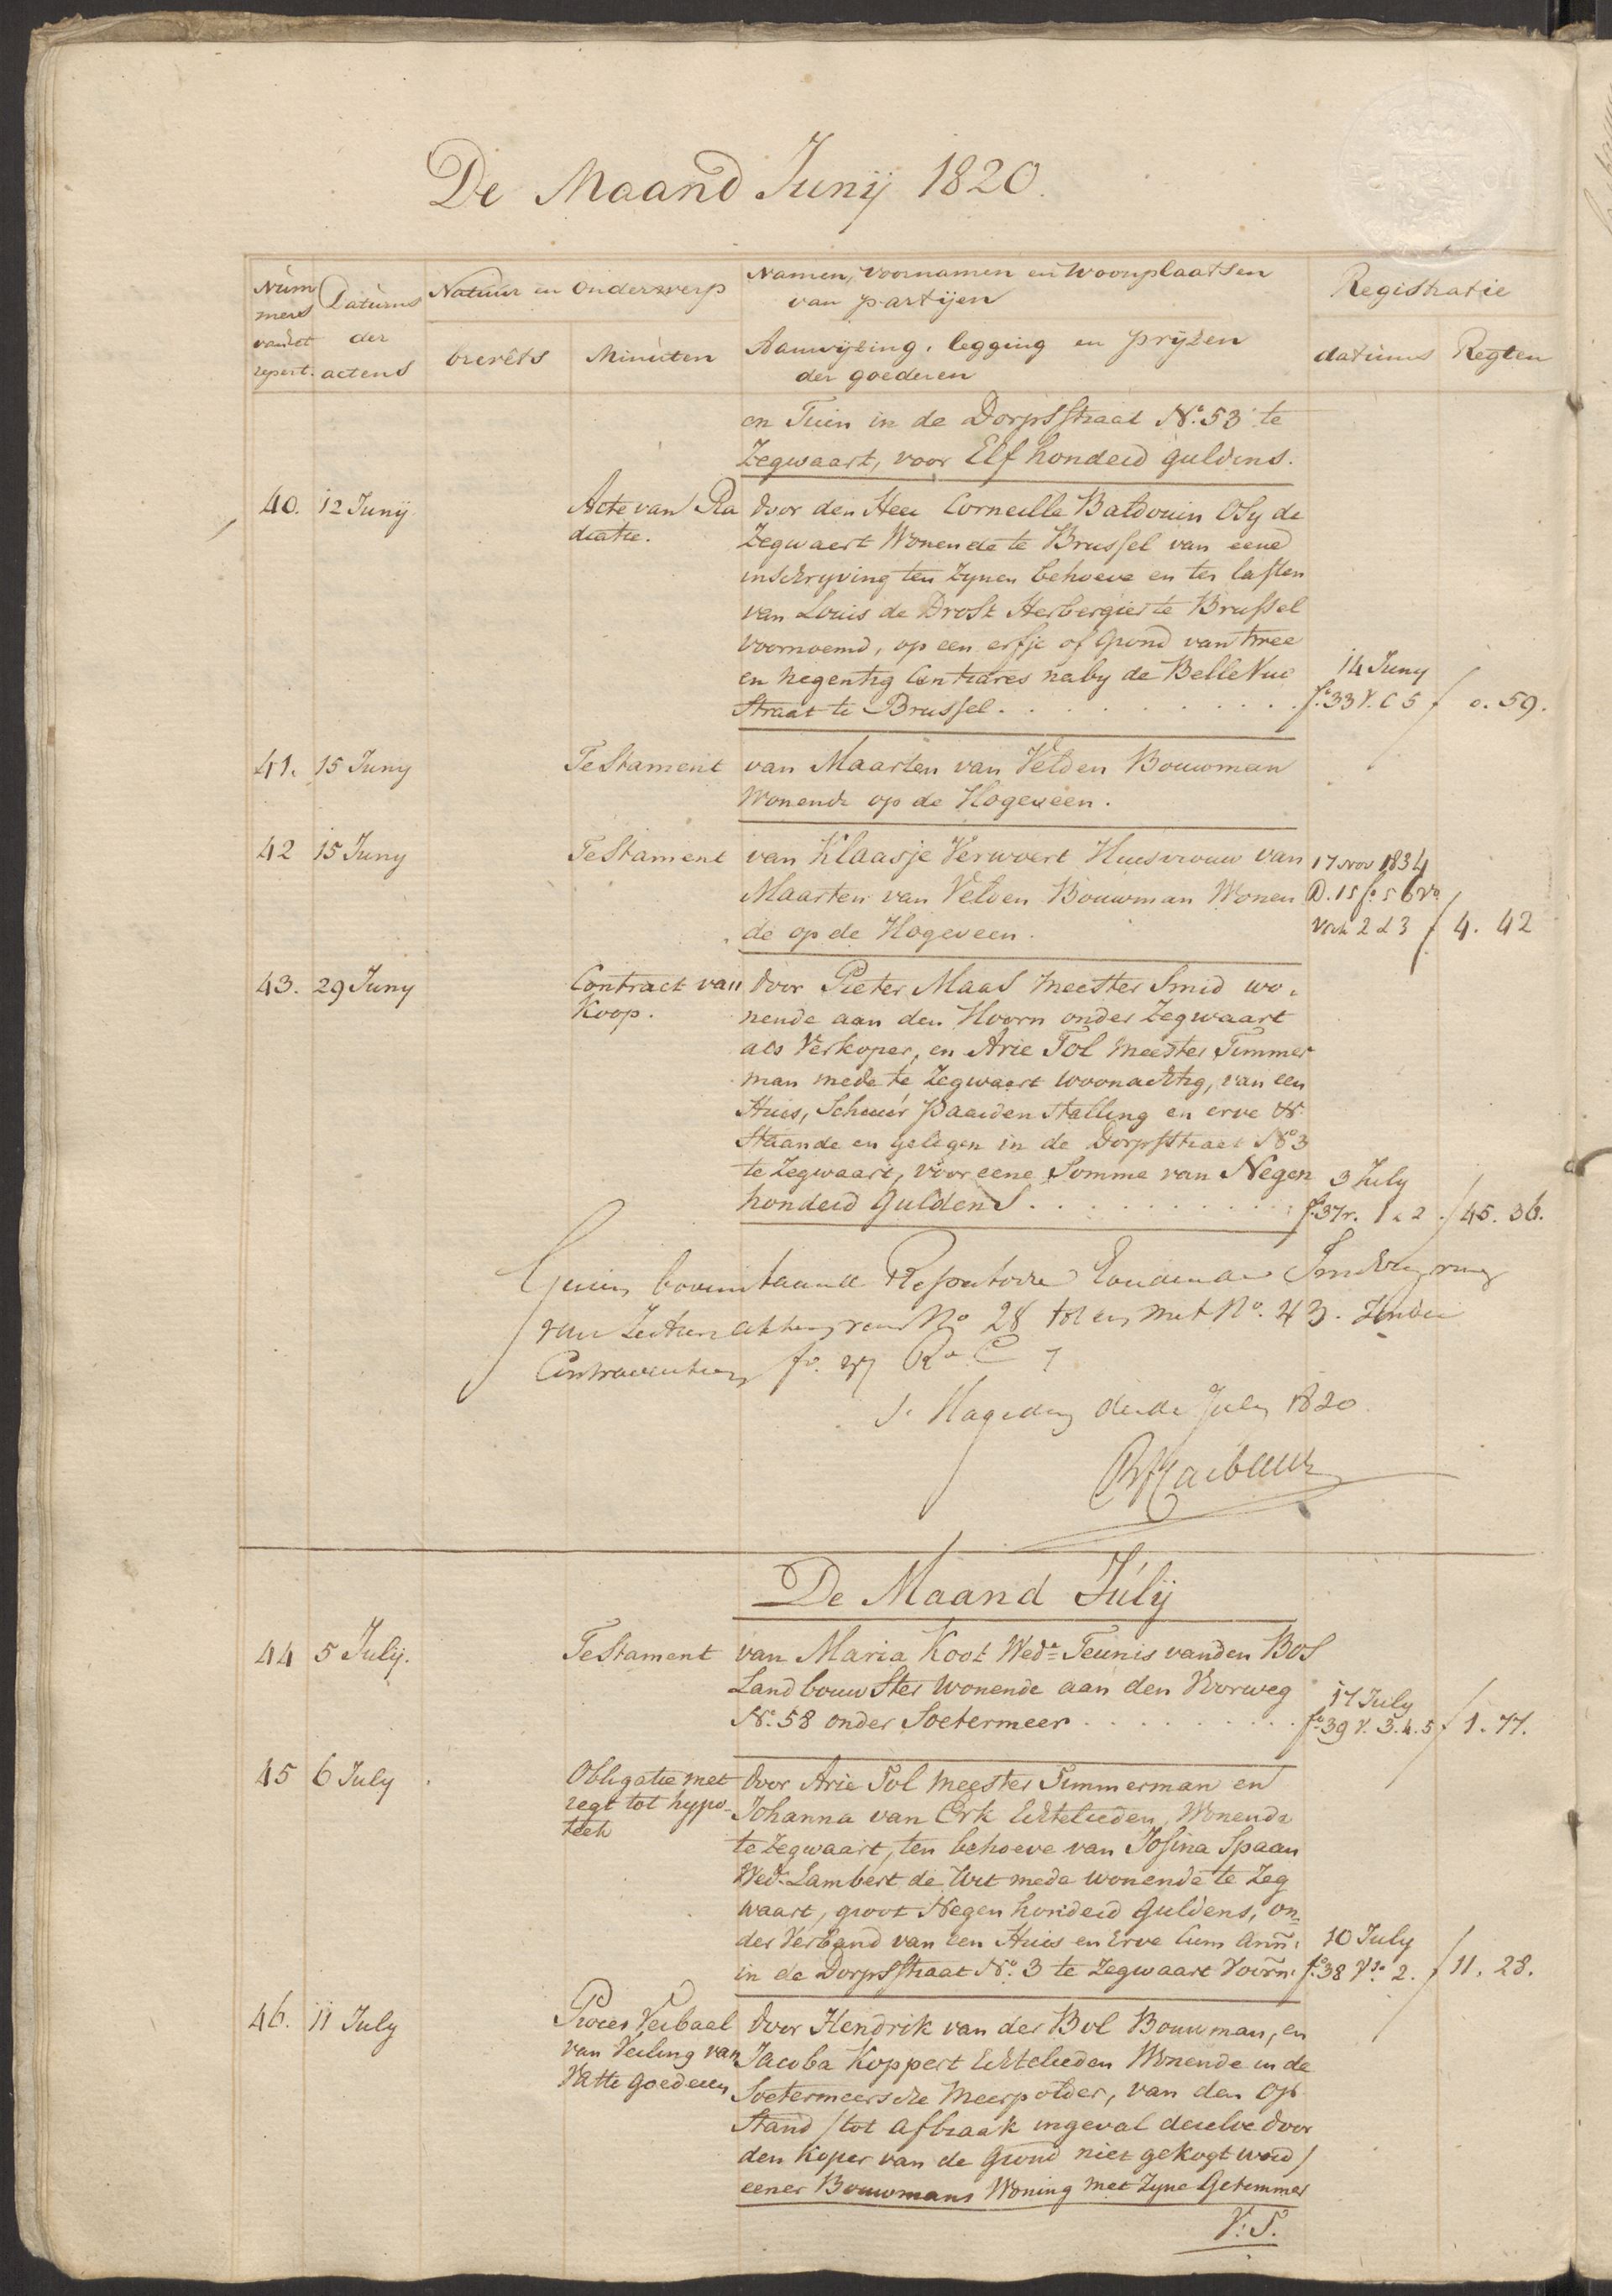 De Maand Junij 1820.
Num
mers
van het
repert.
Datums
der
actens
Natuur en Onderwerp
brevêts
Minuten
Namen, voornamen en Woonplaatsen
van partijen
Aanwijzing, legging en prijzen
der goederen
Registratie
datums
Regten
en Tuin in de Dorpsstraat No. 53 te
Zegwaart, voor Elf honderd guldens.
40. 12 Junij Acte van Ra door den Heer Corneille Baldouin Osy de
diatie. Zegwaert Wonende te Brussel van eene
inschryving ten zynen behoeve en ten lasten
van Louis de Drost Herbergier te Brussel
voornoemd, op een erfje of grond van twee
en negentig Centiares naby de Belle Vue 14 Juny
Straat te Brussel. fo. 33 V. C 5 / 0. 59.
41. 15 Juny Testament van Maarten van Velden Bouwman
Wonende op de Hogeveen.
42 15 Juny Testament van Klaasje Verwoert Huisvrouw van 17 Nov 1834
Maarten van Velden Bouwman Wonen D. 15 fo. 56 Vo
de op de Hogeveen. Vak 2 & 3 / 4. 42
43. 29 Juny Contract van door Pieter Maas Meester Smid wo-
Koop. nende aan den Hoorn onder Zegwaart
als Verkoper, en Arie Tol Meester Timmer
man mede te Zegwaart woonachtig, van een
Huis, Schuur Paarden stalling en erve &c.
Staande en gelegen in de Dorpsstraat No 3
te Zegwaart, voor eene Somme van Negen 3 July
honderd guldens. fo. 37 r. 1 & 2. / 45. 36.
bovenstaande Repertoire
van Zestien akten van No 28 tot en met No. 43. zonder
Contraventien fo. 37 Ro C 7
S. Hage den derde July 1820.
De Maand Julij
44 5 Julij. Testament van Maria Koot Wede Teunis van den Bos
Landbouwster wonende aan den Voorweg 17 July
No. 58 onder Soetermeer. fo. 39 V. 3.4.5 / 1. 77.
45 6 July Obligatie met door Arie Tol Meester Timmerman en
regt tot hypo- Johanna van Erk Echtelieden, Wonende
teek te Zegwaart, ten behoeve van Josina Spaan
Wede. Lambert de Wit mede wonende te Zeg
waart, groot Negen honderd Guldens, on-
der Verband van een Huis en Erve Cum ann: 10 July
in de Dorpsstraat No. 3 te Zegwaart Voorn. fo. 38 Vso. 2. / 11. 28.
46. 11 July Proces Verbaal door Hendrik van der Bol Bouwman, en
van Veiling van Jacoba Koppert Echtelieden Wonende in de
Vatte goederen Soetermeersche Meerpolder, van den Op-
stand /tot afbraak ingeval deselve door
den Koper van de Grond niet gekogt word/
eener Bouwmans Woning met Zyne Getimmer
V: S.